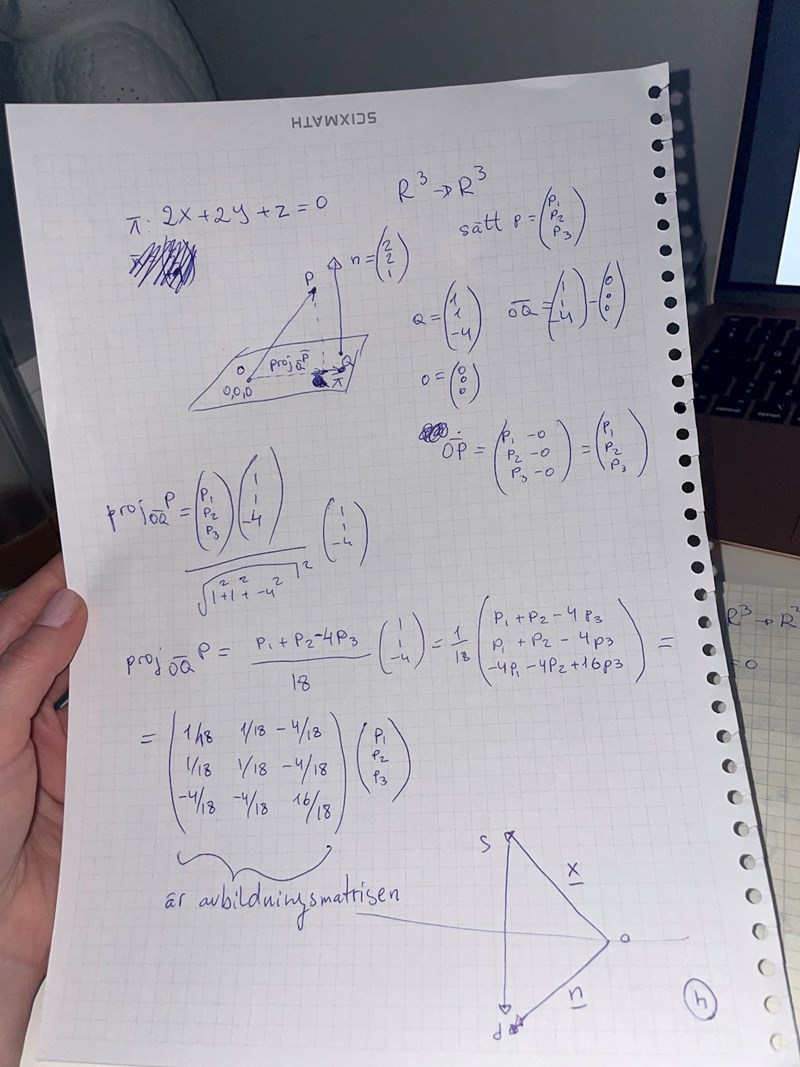 SCIXMATH
π: 2x+2y+z=0
R³→R³
sätt p=(p₁ p₂ p₃)
n=(2 2 1)
P
Q=(1 1 -4) OQ=(1 1 -4)-(0 0 0)
proj OQ P
Q
O
0,0,0
π
O=(0 0 0)
OP=(p₁-0 p₂-0 p₃-0)=(p₁ p₂ p₃)
proj OQ P=(p₁ p₂ p₃)(1 1 -4)/√1²+1²+-4²|² (1 1 -4)
proj OQ P = p₁+p₂-4p₃/18 (1 1 -4)=1/18(p₁+p₂-4p₃ p₁+p₂-4p₃ -4p₁-4p₂+16p₃)=
=(1/18 1/18 -4/18
1/18 1/18 -4/18
-4/18 -4/18 16/18)(p₁ p₂ p₃)
är avbildningsmatrisen
S
x
o
n
d
R³→R
=0